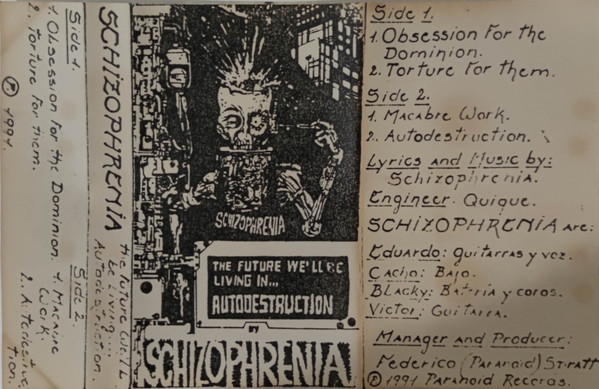 Side 1.
1. Obsession For the Dominion.
2. Torture For them.
Side 2.
1. Macabre Work.
2. Autodestruction.
Ⓟ 1991.
SCHIZOPHRENIA
the Future We'll
be Living...
Autodestruction.
SCHIZOPHRENIA
THE FUTURE WE'LL BE
LIVING IN...
AUTODESTRUCTION
BY
SCHIZOPHRENIA
Side 1.
1. Obsession For the
Dominion.
2. Torture For them.
Side 2.
1. Macabre Work.
2. Autodestruction.
Lyrics and Music by:
Schizophrenia.
Engineer: Quique.
SCHIZOPHRENIA are:
Eduardo: Guitarras y voz.
Cacho: Bajo.
Blacky: Batería y coros.
Victor: Guitarra.
Manager and Producer:
Federico (Paranoid)
Ⓟ 1991 Paranoid Records.